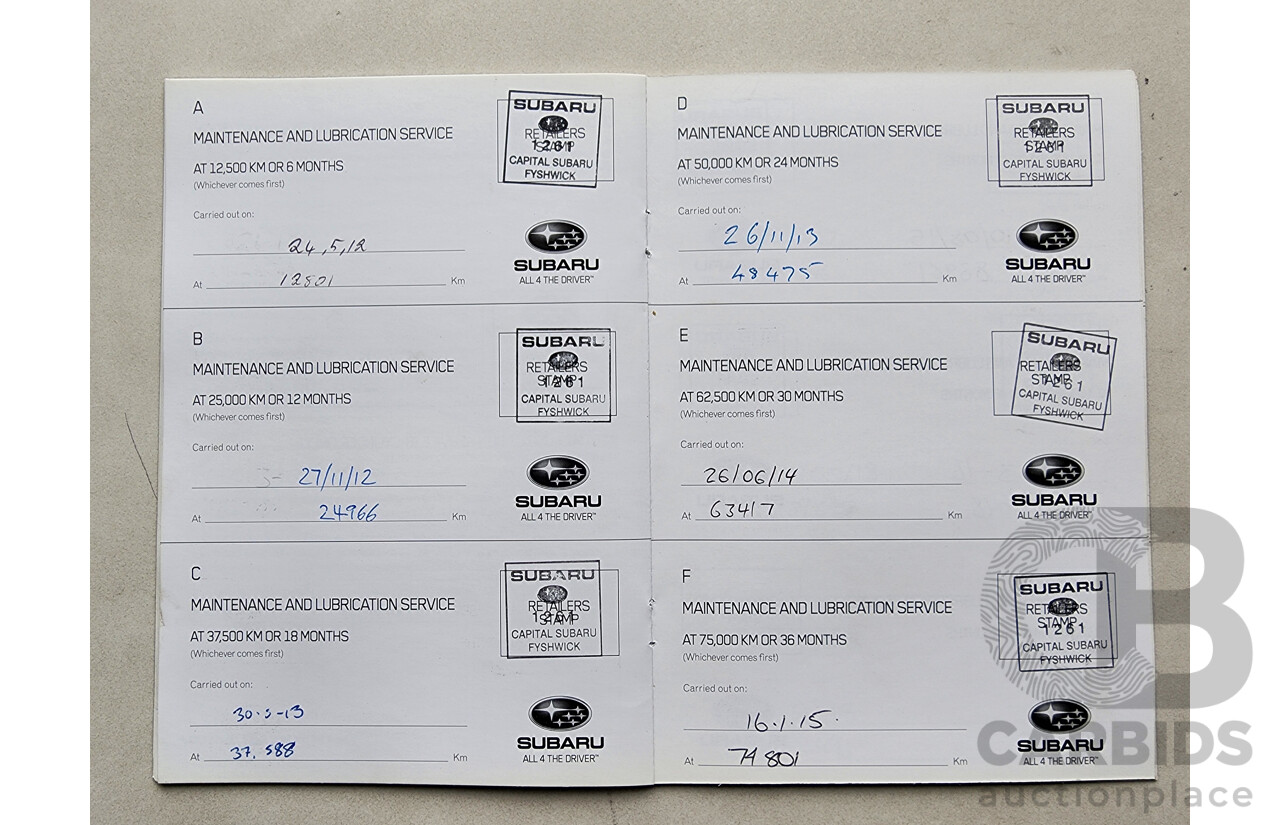 A
MAINTENANCE AND LUBRICATION SERVICE
AT 12,500 KM OR 6 MONTHS
(Whichever comes first)
Carried out on:
24,5,12
At 12501 Km
SUBARU
RETAILERS
STAMP
1261
CAPITAL SUBARU
FYSHWICK
SUBARU
ALL 4 THE DRIVER™
B
MAINTENANCE AND LUBRICATION SERVICE
AT 25,000 KM OR 12 MONTHS
(Whichever comes first)
Carried out on:
27/11/12
At 24966 Km
SUBARU
RETAILERS
STAMP
1261
CAPITAL SUBARU
FYSHWICK
SUBARU
ALL 4 THE DRIVER™
C
MAINTENANCE AND LUBRICATION SERVICE
AT 37,500 KM OR 18 MONTHS
(Whichever comes first)
Carried out on:
30.5-13
At 37.588 Km
SUBARU
RETAILERS
STAMP
1261
CAPITAL SUBARU
FYSHWICK
SUBARU
ALL 4 THE DRIVER™
D
MAINTENANCE AND LUBRICATION SERVICE
AT 50,000 KM OR 24 MONTHS
(Whichever comes first)
Carried out on:
26/11/13
At 48475 Km
SUBARU
RETAILERS
STAMP
1261
CAPITAL SUBARU
FYSHWICK
SUBARU
ALL 4 THE DRIVER™
E
MAINTENANCE AND LUBRICATION SERVICE
AT 62,500 KM OR 30 MONTHS
(Whichever comes first)
Carried out on:
26/06/14
At 63417 Km
SUBARU
RETAILERS
STAMP
1261
CAPITAL SUBARU
FYSHWICK
SUBARU
ALL 4 THE DRIVER™
F
MAINTENANCE AND LUBRICATION SERVICE
AT 75,000 KM OR 36 MONTHS
(Whichever comes first)
Carried out on:
16.1.15.
At 74801 Km
SUBARU
RETAILERS
STAMP
1261
CAPITAL SUBARU
FYSHWICK
SUBARU
ALL 4 THE DRIVER™
CARBIDS
auctionplace